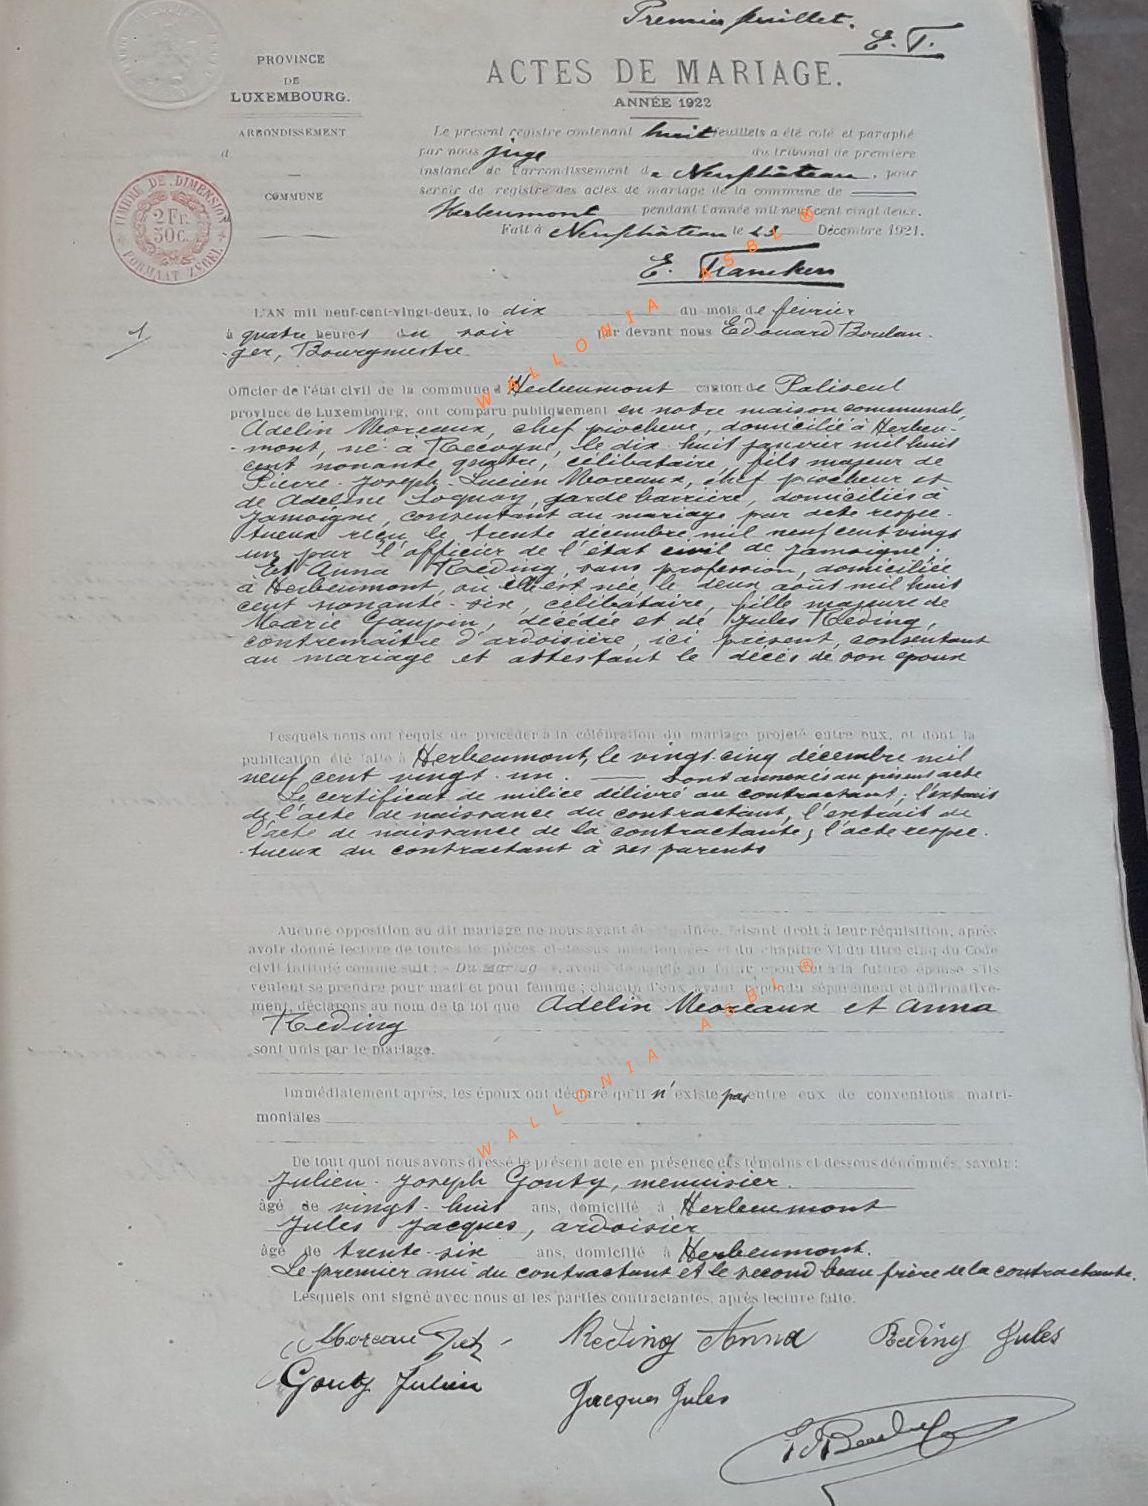 Premier feuillet.
E. T.
PROVINCE
DE
LUXEMBOURG.
ARRONDISSEMENT
d
COMMUNE
TIMBRE DE DIMENSION
2 Fr.
50 C.
FORMAAT ZEGEL
ACTES DE MARIAGE.
ANNÉE 1922
Le présent registre contenant huit feuillets a été coté et paraphé
par nous juge du tribunal de première
instance de l'arrondissement de Neufchâteau, pour
servir de registre des actes de mariage de la commune de
Herbeumont pendant l'année mil neuf cent vingt deux.
Fait à Neufchâteau le 23 Décembre 1921.
E.
1
L'AN mil neuf-cent-vingt-deux, le dix du mois de février
à quatre heures du soir par devant nous Edouard Boulan-
ger, Bourgmestre
Officier de l'état civil de la commune d Herbeumont canton de Paliseul
province de Luxembourg, ont comparu publiquement en notre maison communale,
Adelin Moreaux, chef piocheur, domicilié à Herbeu-
-mont, né à Recogne, le dix-huit janvier mil huit
cent nonante quatre, célibataire, fils majeur de
Pierre-Joseph-Lucien Moreaux, chef piocheur et
de Adeline Loquay, garde barrière, domiciliés à
Jamoigne, consentant au mariage par acte respec-
tueux reçu le trente décembre mil neuf cent vingt
un par l'officier de l'état civil de Jamoigne;
Et Anna Reding, sans profession, domiciliée
à Herbeumont, où elle est née le deux août mil huit
cent nonante-six, célibataire, fille majeure de
Marie Gaupin, décédée et de Jules Reding,
contremaître d'ardoisière, ici présent, consentant
au mariage et attestant le décès de son epoux
Lesquels nous ont requis de procéder à la célébration du mariage projeté entre eux, et dont la
publication été faite à Herbeumont, le vingt-cinq décembre mil
neuf cent vingt-un. Sont annexés au présent acte
Le certificat de milice délivré au contractant; l'extrait
de l'acte de naissance du contractant, l'extrait de
l'acte de naissance de la contractante; l'acte respec-
-tueux du contractant à ses parents
Aucune opposition au dit mariage ne nous ayant été signifiée, faisant droit à leur réquisition, après
avoir donné lecture de toutes les pièces ci-dessus mentionnées et du chapitre VI du titre cinq du Code
civil intitulé comme suit: « Du Mariage », avons demandé au futur époux et à la future épouse s'ils
veulent se prendre pour mari et pour femme; chacun d'eux ayant répondu séparément et affirmative-
ment, déclarons au nom de la loi que Adelin Moreaux et Anna
Reding
sont unis par le mariage.
Immédiatement après, les époux ont déclaré qu'il n'existe pas entre eux de conventions matri-
moniales
De tout quoi nous avons dressé le présent acte en présence des témoins ci-dessous dénommés, savoir:
Julien-Joseph Gouty, menuisier.
âgé de vingt-huit ans, domicilié à Herbeumont
Jules Jacques, ardoisier
âgé de trente-six ans, domicilié à Herbeumont.
Le premier ami du contractant et le second beau frère de la contractante.
Lesquels ont signé avec nous et les parties contractantes, après lecture faite.
Reding Anna Reding Jules
Gouty Julien
Jacques Jules
WALLONIA ASBL ®
WALLONIA ASBL ®